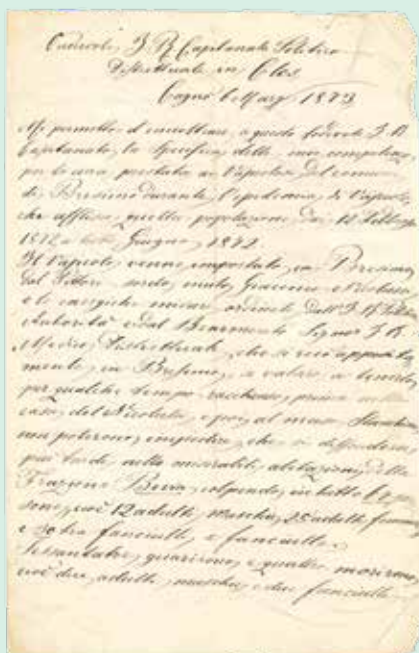 Lodevole I. R. Capitanato Politico
Distrettuale in Cles
Cagnò 6 Marzo 1873
Mi permetto d'innoltrare, a questo lodevole I. R.
Capitanato, la specifica delle mie competenze
per la cura prestata ai Vajuolosi del comune
di Bresimo durante l'epidemia, di Vajuolo,
che afflisse, quella popolazione, dai 12 Febbrajo
1872 a tutto Giugno, 1872.
Il Vajuolo, venne importato, in Bresimo,
dal sordo, muto, Giacomo
e le energiche misure, ordinate dall' I. R.
Autorità e dal Signor I. R.
Medico, Distrettuale, che si recò apposita
mente, in Bresimo, a tenerlo
per qualche tempo, racchiuso, prima nella
casa, del e poi, al
non poterono, impedire, che si diffondesse,
più tardi, nelle abitazioni, della
Frazione colpendo, in tutto 67 per
sone, cioè 12 adulti, maschi, 25 adulte, femmine,
e 30 tra fanciulli, e fanciulle.
Sessantatre, guarirono, e quattro, morirono,
cioè due, adulti, maschi, e due fanciulle.